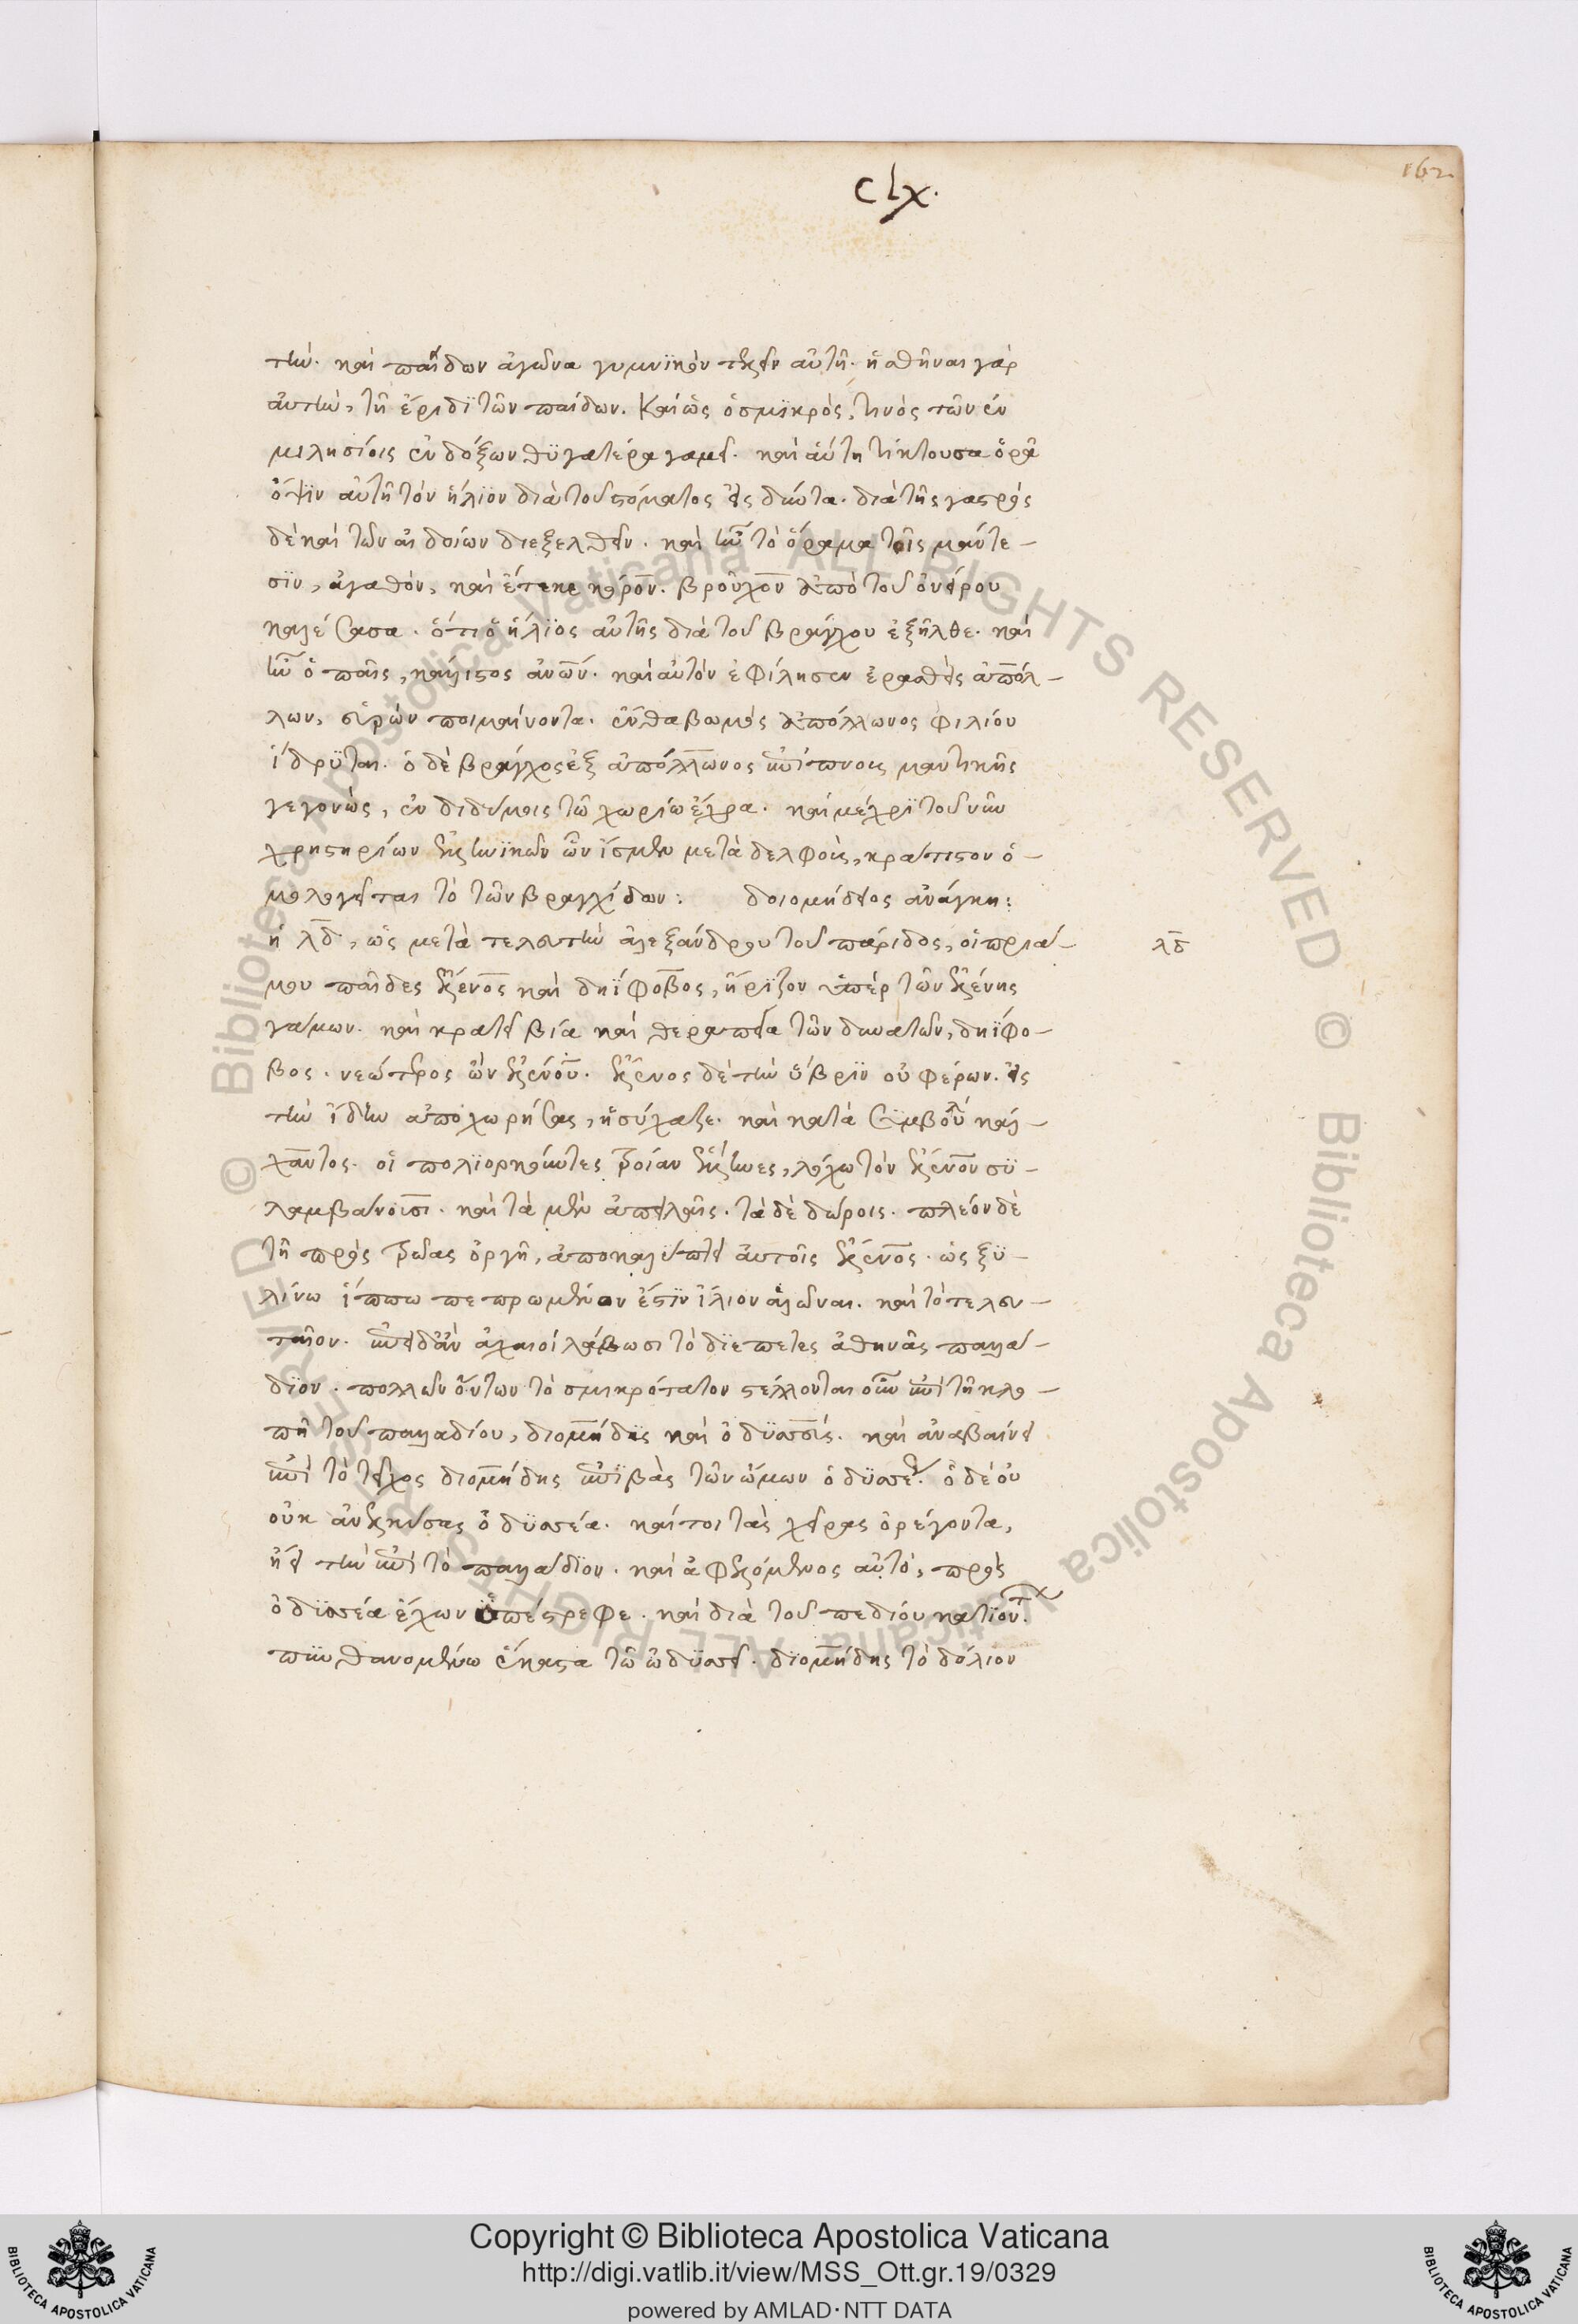 clx.
162
την. καὶ παίδων ἀγῶνα γυμνϊκὸν τελεῖν αὐτῇ. ἡσθῆναι γὰρ
αὐτὴν, τῇ ἔριδϊ τῶν παίδων. Καὶ ὡς ὁ σμϊκρὸς, τινὸς τῶν ἐν
μιλησίοις ἐνδόξων θϋγατέρα γαμεῖ. καὶ αὕτη τίκτουσα ὁρᾷ
ὄψϊν αὐτῇ τὸν ἥλϊον διὰ τοῦ στόματος εἰσδύντα. διὰ τῆς γαστρὸς
δὲ καὶ τῶν αἰδοίων διεξελθεῖν. καὶ ἦν τὸ ὅραμα τοῖς μάντε-
σϊν, ἀγαθόν, καὶ ἔτεκε κόρον. βροῦχον ἀπὸ τοῦ ὀνείρου
καλέσασα. ὅτι ὁ ἥλϊος αὐτῆς διὰ τοῦ βράγχου ἐξῆλθε. καὶ
ἦν ὁ παῖς, κάλλιστος ἀνων. καὶ αὐτὸν ἐφίλησεν ἐρασθεὶς ἀπόλ-
λων, εὑρὼν ποιμαίνοντα. ἔνθα βωμὸς ἀπόλλωνος φιλίου
ἵδρϋται. ὁ δὲ βράγχος ἐξ ἀπόλλωνος ἐπίπνοις μαντικῆς
γεγονὼς, ἐν διδύμοις τῷ χωρίω ἔχρα. καὶ μέχρϊ τοῦ νῦν
χρηστηρίων ἑλληνϊκῶν ὧν ἴσμεν μετὰ δελφοὺς, κράτιστον ὁ-
μολογεῖται τὸ τῶν βραγχίδων: δοιομήδειος ἀνάγκη:
ἡ λδ, ὡς μετὰ τελευτὴν ἀλεξάνδρου τοῦ πάριδος, οἱ πριά-
λδ
μου παῖδες ἕλενος καὶ δηίφοβος, ἤρϊζον ὑπὲρ τῶν ἑλένης
γάμων. καὶ κρατεῖ βία καὶ θεραπεία τῶν δυνατῶν, δηΐφο-
βος. νεώτερος ὢν ἑλένου. ἕλενος δὲ τὴν ὕβρϊν οὐ φέρων. εἰς
τὴν ἴδην ἀποχωρήσας, ἡσύχαζε. καὶ κατὰ συμβουλὴν κάλ-
χαντος. οἱ πολϊορκοῦντες τροίαν ἕλληνες, λόχω τὸν ἕλενον σϋ-
λαμβάνουσι. καὶ τὰ μὲν ἀπειλαῖς. τὰ δὲ δώροις. πλέον δὲ
τῇ πρὸς τρῶας ὀργῇ, ἀποκαλύπτει αὐτοῖς ἕλενος. ὡς ξϋ-
λίνω ἵππω πεπρωμένον ἐστϊν ἴλιον ἁλῶναι. καὶ τὸ τελευ-
ταῖον. ἐπειδὰν ἀχαιοὶ λάβωσι τὸ δϊεπετες ἀθηνᾶς παλλά-
δϊον. πολλῶν ὄντων τὸ σμικρότατον στέλλονται οὖν ἐπὶ τῇ κλο-
πῇ τοῦ παλλαδίου, διομήδης καὶ ὀδϋσσεύς. καὶ ἀναβαίνει
ἐπὶ τὸ τεῖχος διομήδης ἐπϊβὰς τῶν ὤμων ὀδϋσσέως. ὁ δὲ οὐ
οὐκ ἀνελκύσας ὀδϋσσέα. καίτοι τὰς χεῖρας ὀρέγοντα,
ᾔει τὴν ἐπὶ τὸ παλλάδϊον. καὶ ἀφελόμενος αὐτὸ, πρὸς
ὀδϋσσέα ἔχων ὑπέστρεφε. καὶ διὰ τοῦ πεδίου κατϊόντων.
πϋνθανομένω ἕκαστα τῷ ὀδϋσσεῖ. δϊομήδης τὸ δόλιον
Copyright © Biblioteca Apostolica Vaticana
http://digi.vatlib.it/view/MSS_Ott.gr.19/0329
powered by AMLAD·NTT DATA